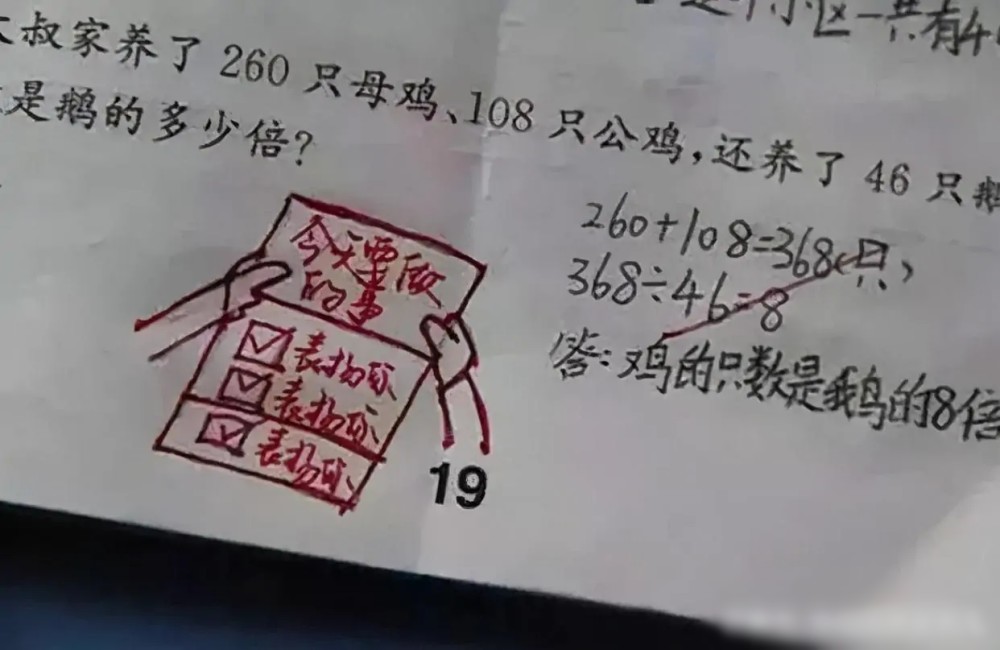 是个小区一共有4
大叔家养了 260 只母鸡、108 只公鸡，还养了 46 只鹅
是鹅的多少倍？
260+108=368(只)
368÷46=8
答：鸡的只数是鹅的8倍
今天要做
的事
表扬你
表扬你
表扬你
19